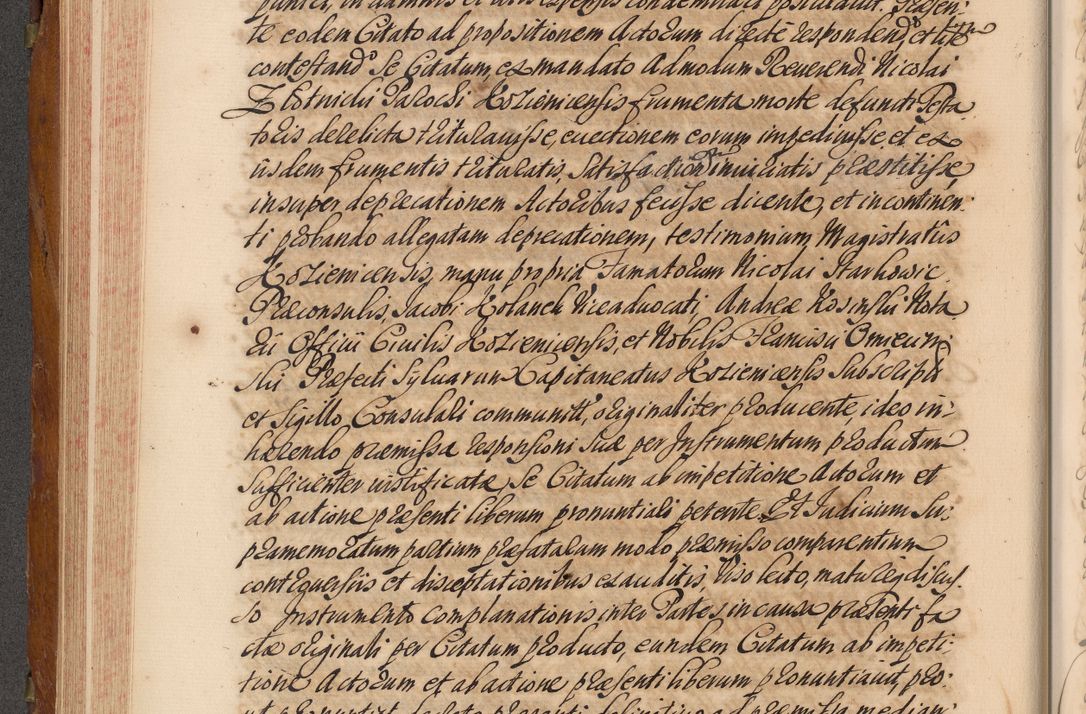 puniri, in damnis et litis expensis condemnari postularat. Praesen:
te eodem Citato ad propositionem Actorum directe respondendo, et litem
contestando Se Citatum, ex mandato Admodum Reverendi Nicolai
Parochi Kozienicensis frumenta morte defuncti Testa
toris derelicta triturauisse, euectionem eorum impediuisse, et ex
iisdem frumentis trituratis, Satisfactionem iniuriatis praestitisse,
insuper deprecationem Actoribus fecisse dicente, et in continen:
ti probando allegatam deprecationem, testimonium Magistratus
Kozienicensis, manu propria Famatorum Nicolai Starkowic
Praeconsulis, Jacobi Kolanek Viceaduocati, Andreae Kosinski Nota
rii Officii Ciuilis Kozienicensis, et Nobilis Francisci Omiecin
ski Praefecti Syluarum Capitaneatus Kozienicensis Subscripto
et Sigillo Consulari communito, originaliter producente, ideo in:
haerendo praemissa responsioni Suae per Instrumentum productum
Sufficienter iustificatae Se Citatum ab impetitione Actorum et
ab actione praesenti liberum pronuntiari petente. Et Iudicium Su:
pramemoratum partium praefatarum modo praemisso comparentium
controuersiis et disceptationibus exauditis, Viso lecto, matureque discus:
so Instrumento complanationis inter Partes in causa praesenti fa
ctae originali per Citatum producto, eundem Citatum ab impeti:
tione Actorum et ab actione praesenti liberum pronuntiauit, pro:
ut pronuntiat